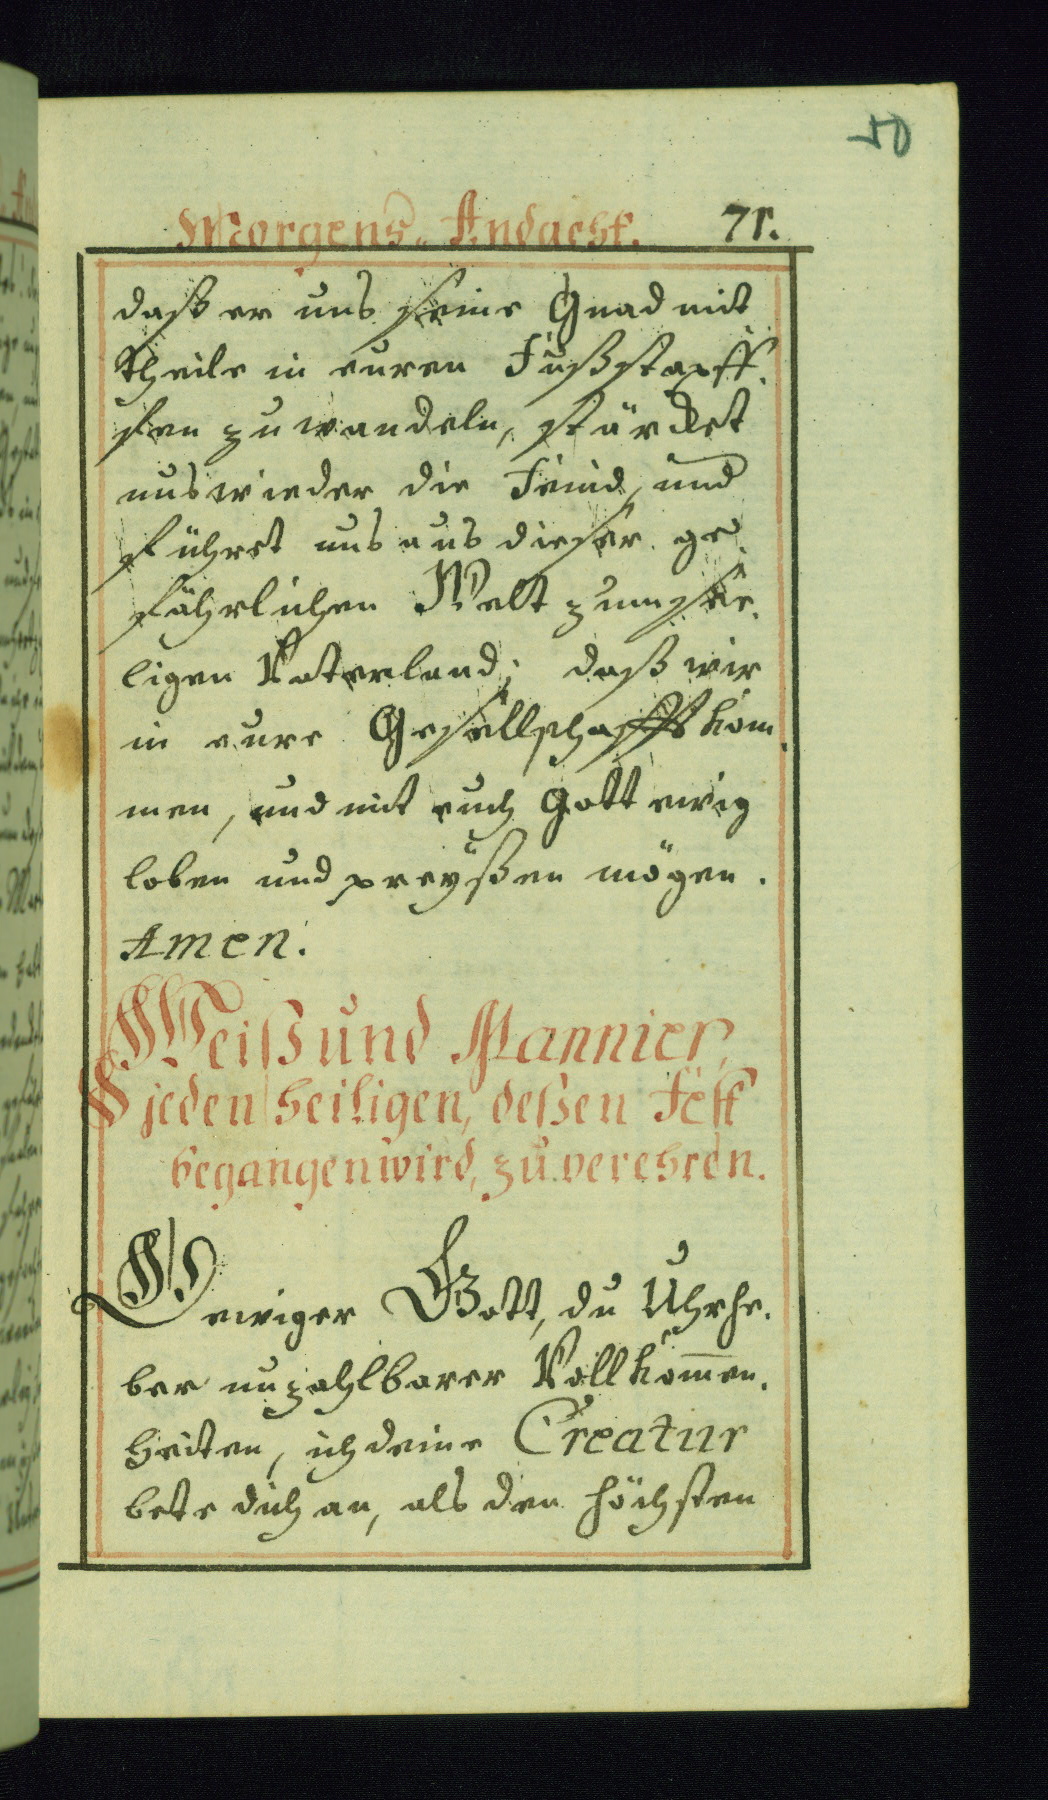 50
Morgens. Andacht. 71.
daß er uns seine Gnad mit
theile in euren Fußstapff.
fen zu wandeln, stärcket
uns wieder die Feind, und
führet uns aus dieser ge.
fährlichen Welt zum see.
ligen Vaterland; daß wir
in eure Gesellschafft kom.
men, und mit euch Gott ewig
loben und preÿßen mögen.
Amen.
Weiß und Mannier,
jeden heiligen, deßen Fest
begangen wird, zu verehren.
O ewiger Gott, du Uhrhe.
ber unzahlbarer Vollkom̄en.
heiten, ich deine Creatur
bete dich an, als den höchsten